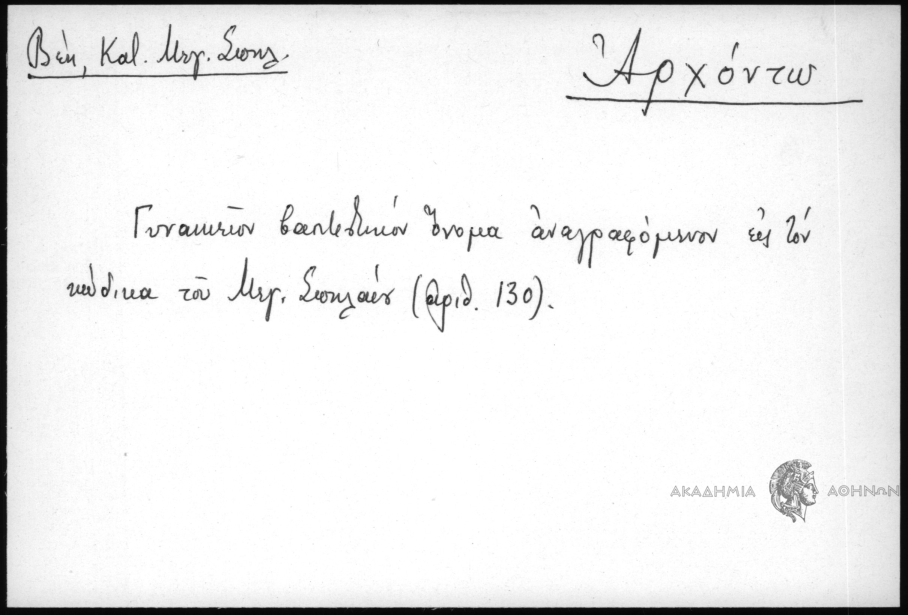 Βέη, Κατ. Μεγ. Σπηλ.
Ἀρχόντω
Γυναικεῖον βαπτιστικόν ὄνομα ἀναγραφόμενον εἰς τόν
κώδικα τοῦ Μεγ. Σπηλαίου (ἀριθ. 130).
ΑΚΑΔΗΜΙΑ ΑΘΗΝΩΝ